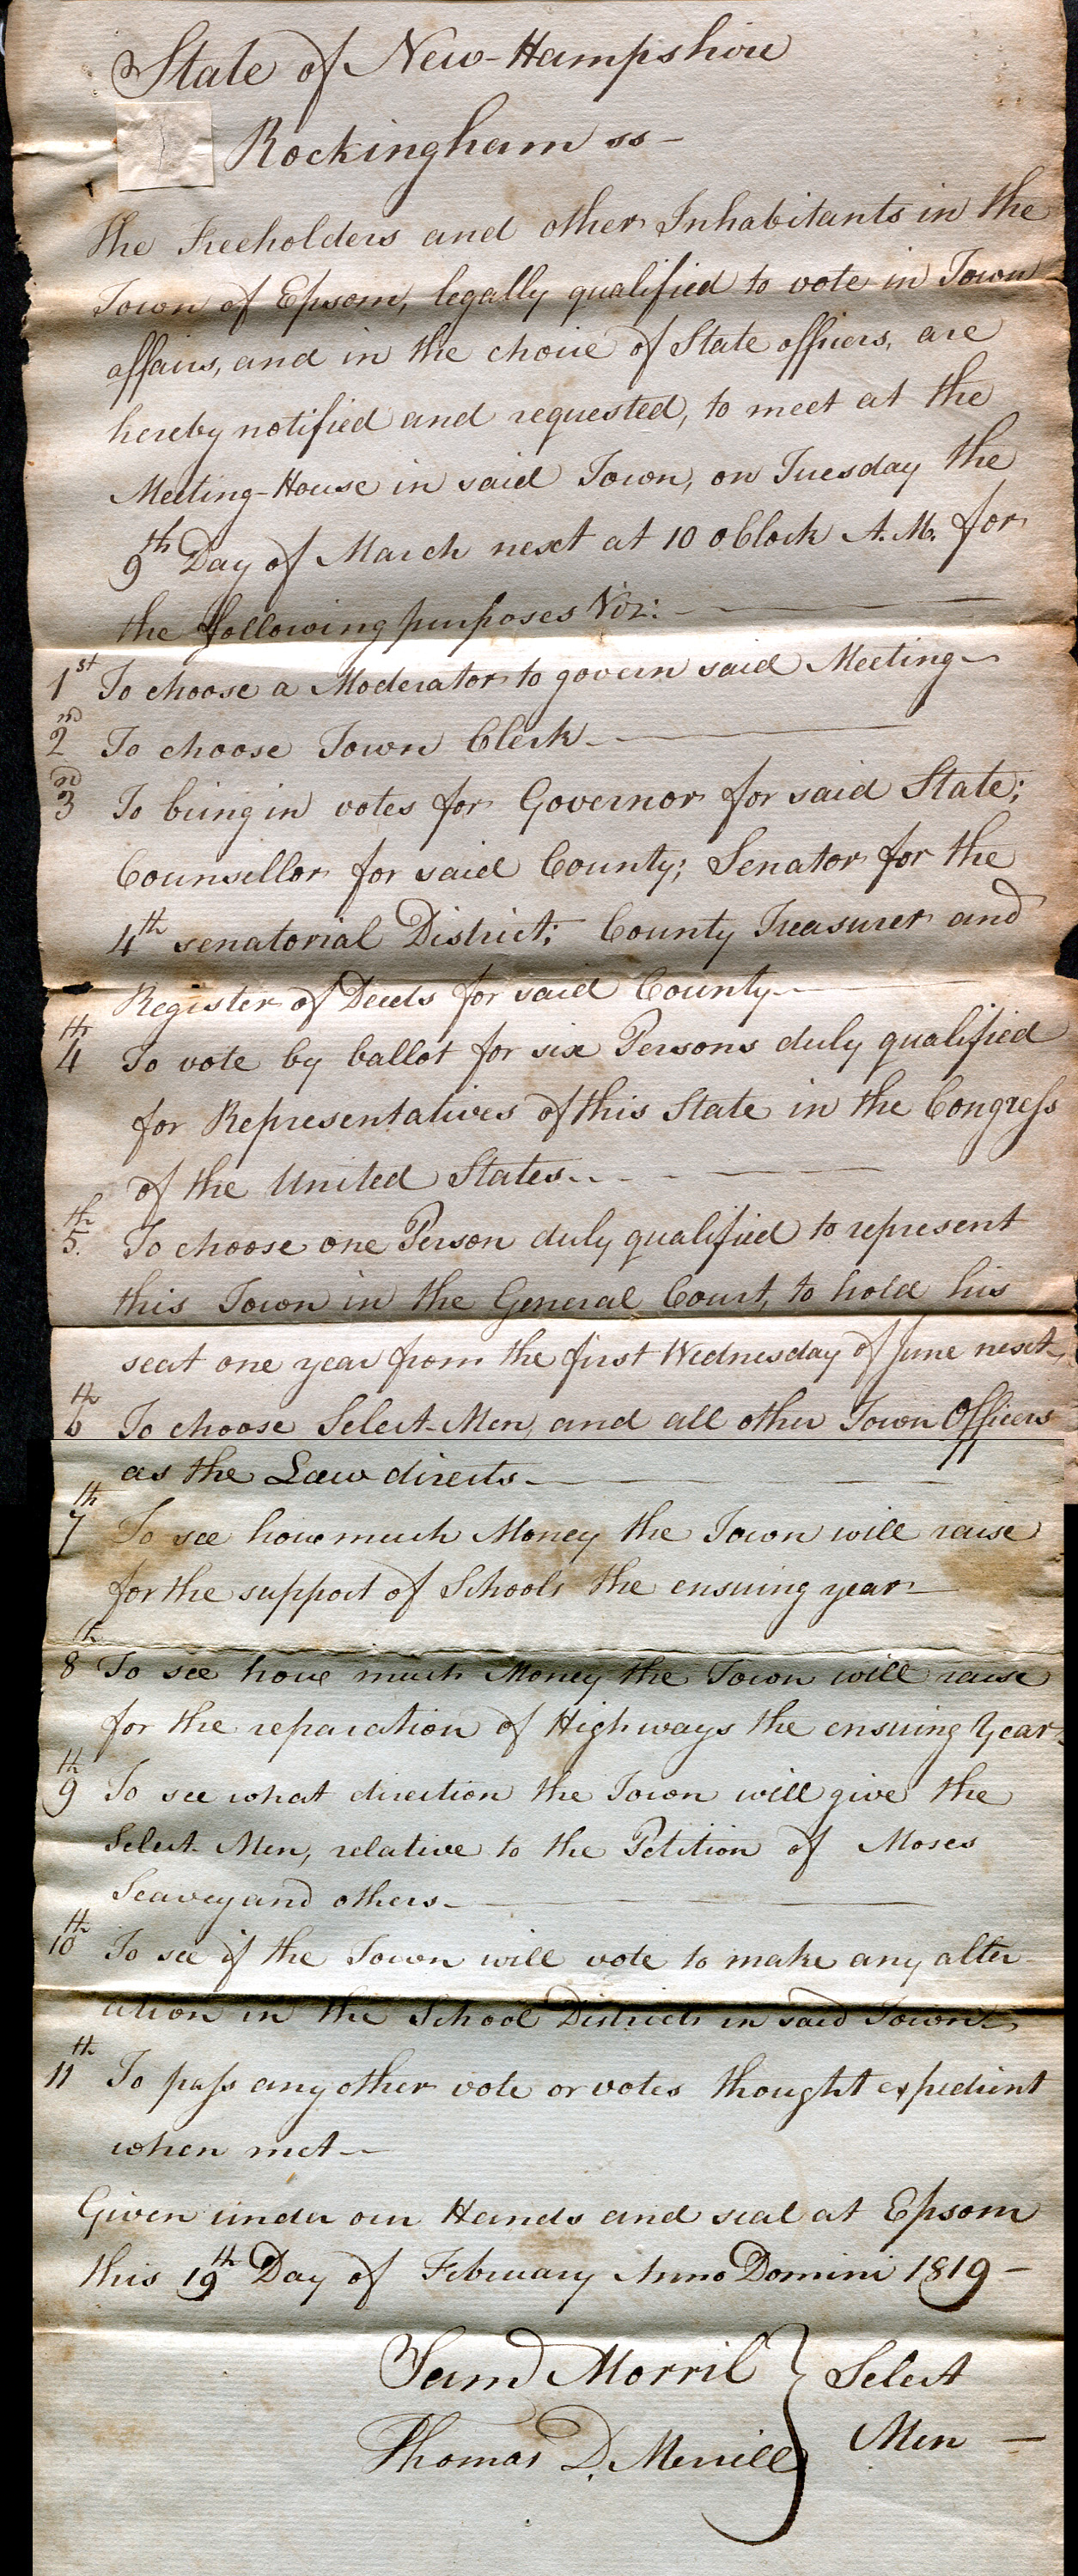 State of New-Hampshire
Rockingham ss-
the Freeholders and other Inhabitants in the
Town of Epsom, legally qualified to vote in Town
affairs, and in the choice of State officers, are
hereby notified and requested, to meet at the
Meeting-House in said Town, on Tuesday the
9th Day of March next at 10 oClock A.M. for
the following purposes Viz:
1st To choose a Moderator to govern said Meeting
2nd To choose Town Clerk
3rd To bring in votes for Governor for said State;
Counsellor for said County; Senator for the
4th senatorial District; County Treasurer and
Register of Deeds for said County
4th To vote by ballot for six Persons duly qualified
for Representatives of this State in the Congress
of the United States
5th. To choose one Person duly qualified to represent
this Town in the General Court, to hold his
seat one year from the first Wednesday of June next
6th To choose Select-Men, and all other Town Officers
as the Law directs
7th To see how much Money the Town will raise
for the support of Schools the ensuing year
8th To see how much Money the Town will raise
for the reparation of Highways the ensuing Year
9th To see what direction the Town will give the
Select-Men, relative to the Petition of Moses
Seavey and others
10th To see if the Town will vote to make any alter-
ation in the School Districts in said Town
11th To pass any other vote or votes thought expedient
when met
Given under our Hands and seal at Epsom
this 19th Day of February Anno Domini 1819-
Samd Morril } Select
Thomas D. Merrill } Men